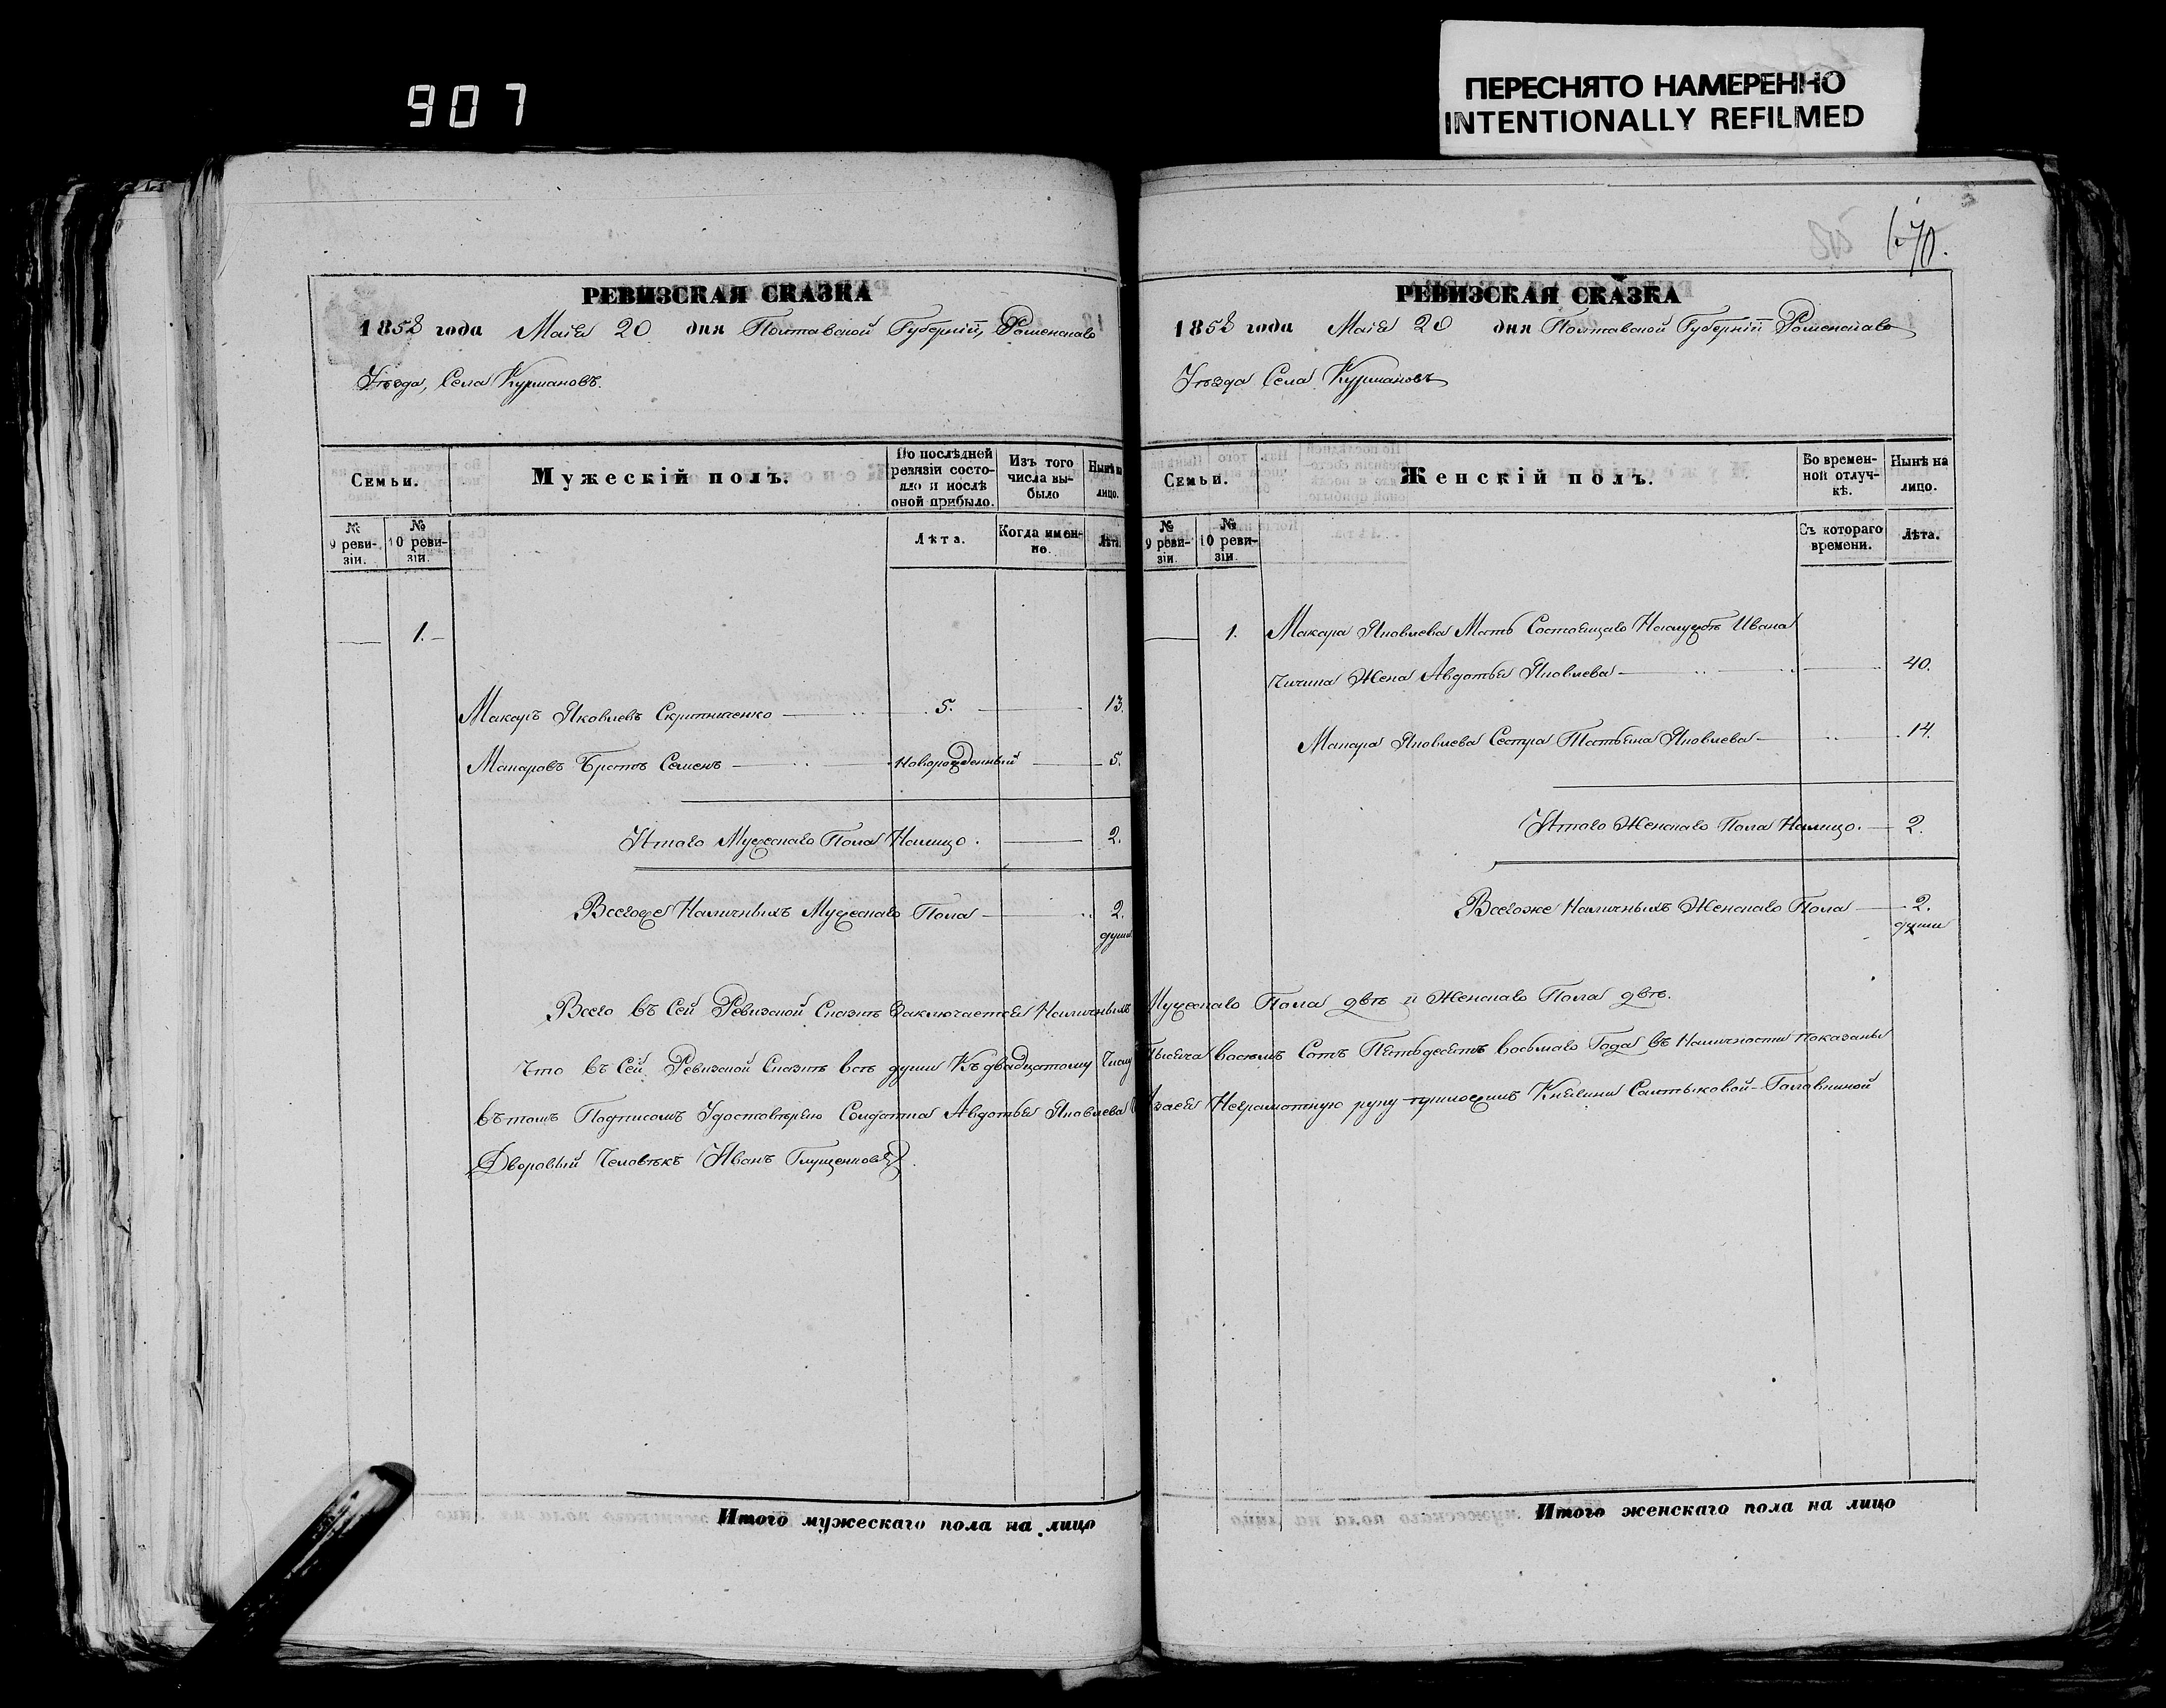 907
ПЕРЕСНЯТО НАМЕРЕННО
INTENTIONALLY REFILMED
РЕВИЗСКАЯ СКАЗКА
1858 года Маія 20 дня Полтавской Губерніи, Роменскаго
Уѣзда, Села Курмановъ.
Семьи.
Мужескій полъ.
По послѣдней ревизіи состояло и послѣ оной прибыло.
Изъ того числа выбыло
Нынѣ на лицо.
№ 9 ревизіи.
№ 10 ревизіи.
Лѣта.
Когда именно.
Лѣта
1.
Макаръ Яковлевъ Скрипниченко 5. 13.
Макаровъ Братъ Семенъ Новорожденный 5.
Итого Мужескаго Пола Налицо. 2.
Всегоже Наличныхъ Мужескаго Пола 2.
души
РЕВИЗСКАЯ СКАЗКА
1858 года Маія 20 дня Полтавской Губерніи Роменскаго
Уѣзда Села Курмановъ
Семьи.
Женскій полъ.
Во временной отлучкѣ.
Нынѣ на лицо.
№ 9 ревизіи.
№ 10 ревизіи.
Съ котораго времени.
Лѣта.
1. Макара Яковлева Мать Состоящаго Наслужбѣ Ивана
Жена Авдотья Яковлева 40.
Макара Яковлева Сестра Татьяна Яковлева 14.
Итого Женскаго Пола Налицо. 2.
Всегоже Наличныхъ Женскаго Пола 2.
души
Всего въ Сей Ревизской Сказкѣ Заключается Наличныхъ Мужескаго Пола двѣ и Женскаго Пола двѣ.
Что въ Сей Ревизской Сказкѣ всѣ души Къ двадцатому Числу Тысяча восемь Сотъ Пятьдесятъ восьмаго Года въ Наличности показаны
въ томъ Подписомъ Удостовѣряю Солдатка Авдотья Яковлева Неграмотную руку приложилъ Княгини Салтыковой-Головкиной
Дворовый Человѣкъ Иванъ Глущенковъ.
Итого мужескаго пола на лицо
Итого женскаго пола на лицо